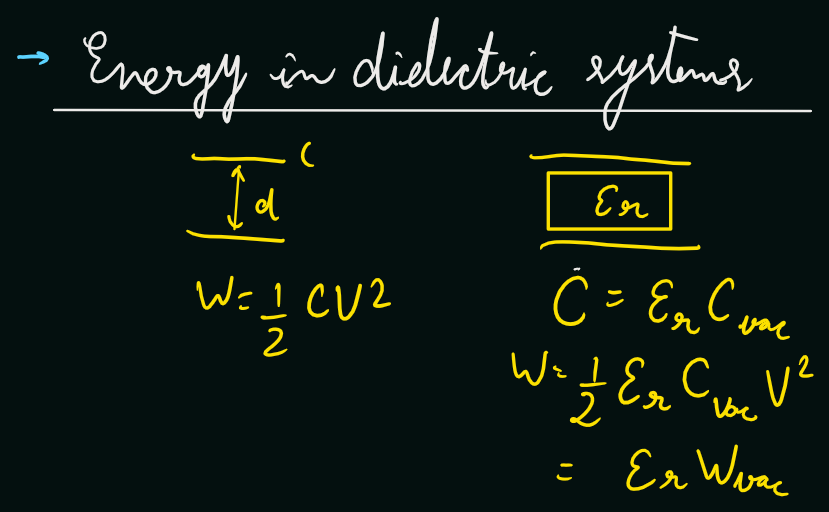 → Energy in dielectric systems
C
d
εr
W = 1/2 CV²
C = εr Cvac
W = 1/2 εr Cvac V²
= εr Wvac